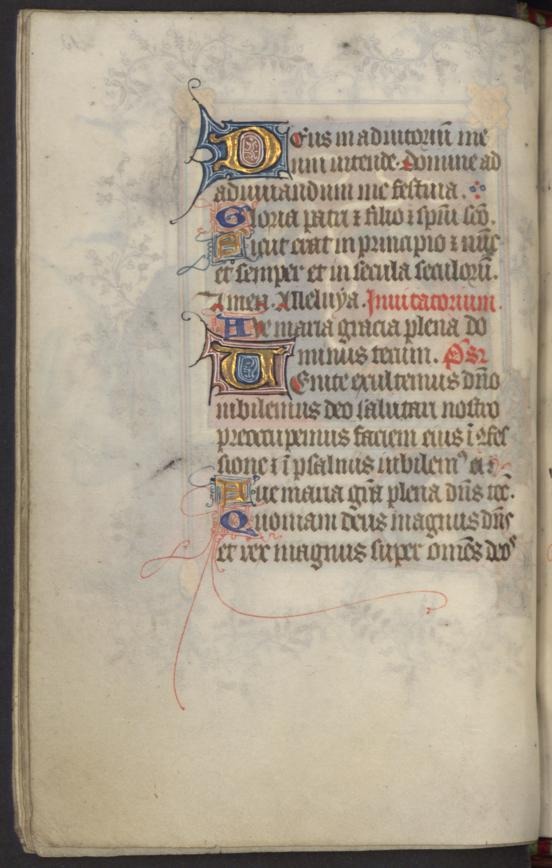 Deus in adiutoriū me
um intende. Domine ad
adiuuandum me festina.
Gloria patri ⁊ filio ⁊ spūi scō.
Sicut erat in principio ⁊ nūc
et semper et in secula seculorū.
Amen. Alleluya. Inuitatorium.
Aue maria gracia plena do
minus tecum. Ps̄
Uenite exultemus dn̄o
iubilemus deo salutari nostro
preocupemus faciem eius ī ꝯfes
sione ⁊ ī psalmis iubilemꝰ ei
Aue maria gr̄a plena dn̄s tec̄.
Quoniam deus magnus dn̄s
et rex magnus super omēs deoˢ